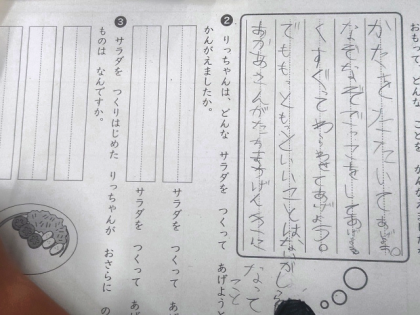 おもって、どんな ことを かんがえましたか
かたをたたいてあげる。
なぞなぞごっこをしてあげる
くすぐってわらわせてあげよう。
でももっともっといいことはないかしら
おかあさんがたちまちげんきに
なって
こと
❷ りっちゃんは、どんな サラダを つくって あげようと
かんがえましたか。
サラダを つくって あ
サラダを つくって あ
❸ サラダを つくりはじめた りっちゃんが おさらに の
ものは なんですか。